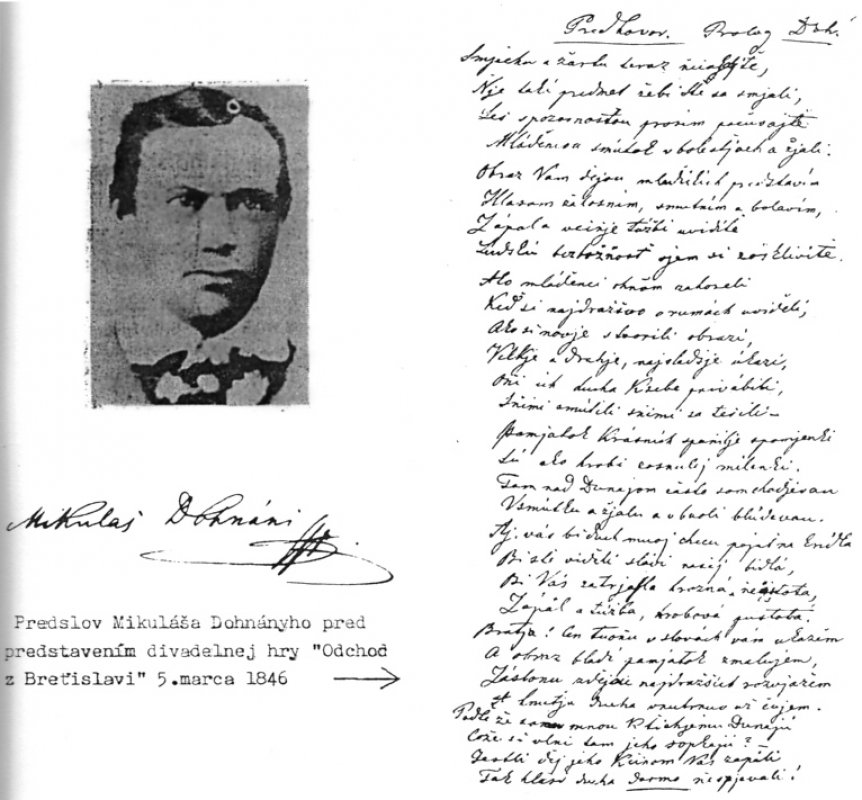 Mikulaj Dohnáni
Predslov Mikuláša Dohnányho pred
predstavením divadelnej hry "Odchod
z Breťislavi" 5.marca 1846
Predhovor. Prolog Doh.
Smjechu a žartu teraz
Nje takí predmet žebi sa smjali,
Les spozornosťou prosím počúvajte
Mládencou smútok v bolasťjach a žjali.
Obraz Vám dejou mladších predstavím
Hlasom žalosním, smutním a bolavím,
Zápal a túžbi uvidíte
Ludskú bezbožnosť si zošklivíte.
Ako mládenci ohňom zahoreli
Keď si najdražšvo v rumách uviďeli,
Ako si novje stvorili obrazi,
Velkje a drahje, najsladšje úkazi,
Oni ich ducha Ksebe privábili,
Sňimi smútili sňimi sa ťešili –
Pamjatok Krásních spomjenki
Sú ako hrobi zosnulej milenki.
Tam nad Dunajom často som chodjevau
V smútku a žjalu a v bluďevau.
Aj vás bi duch muoj chceu pojať na Krídla
Bi ste viďeli sladí našej bidlá,
Bi Vás zatrjasla hrozná
Zápal a túžba, hrobová pustota.
Braťja! Len tvoňu v slovách vám ukážem
A obraz bladí pamjatok zmalujem,
Záslonu najdražších rozvjažem
Smutja ducha vnutrnuo už čujem.
Poďťe že samnou K ťichjemu Dunaju
Čože sa vlni tam jeho
Jestli ďej jeho Vás zapáli
Tak hlasi ducha darmo ňespjevali!